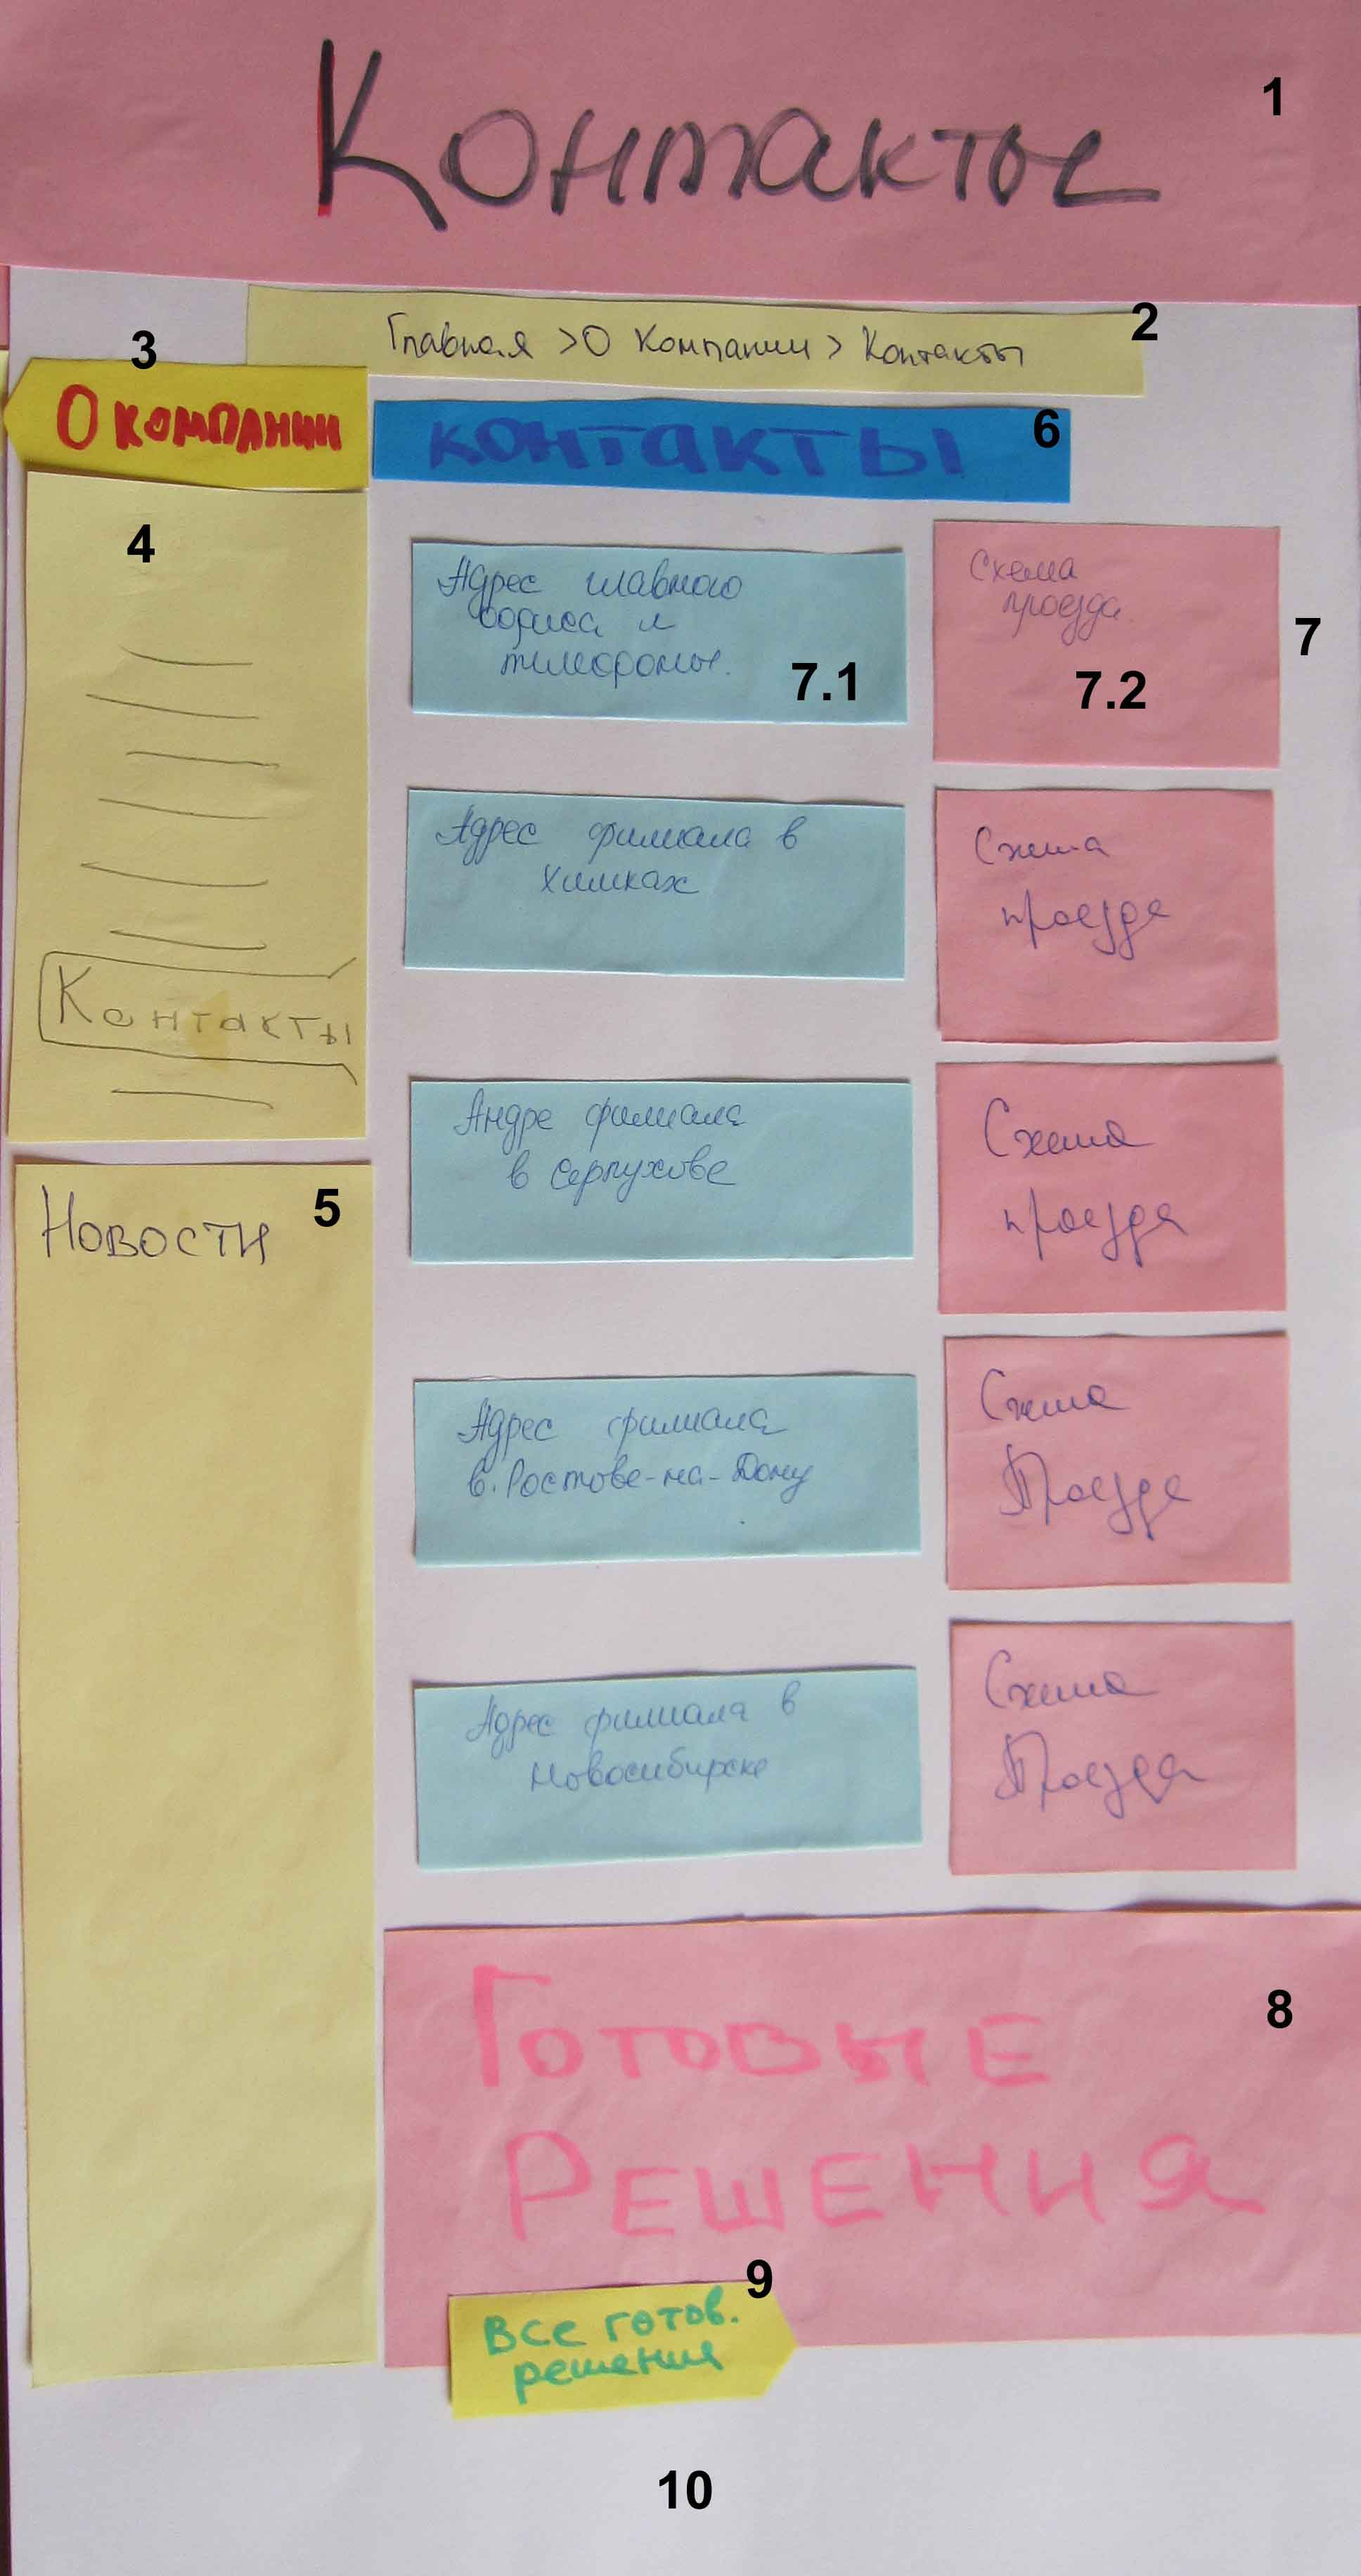 Контакты
1
Главная > О компании > Контакты
2
3
О компании
4
Контакты
Новости
5
контакты
6
Адрес главного
офиса и
телефоны.
7.1
Схема
проезда
7.2
7
Адрес филиала в
Химках
Схема
проезда
Андре филиала
в Серпухове
Схема
проезда
Адрес филиала
в. Ростове-на-Дону
Схема
Проезда
Адрес филиала в
Новосибирске
Схема
Проезда
Готовые
Решения
8
9
Все готов.
решения
10